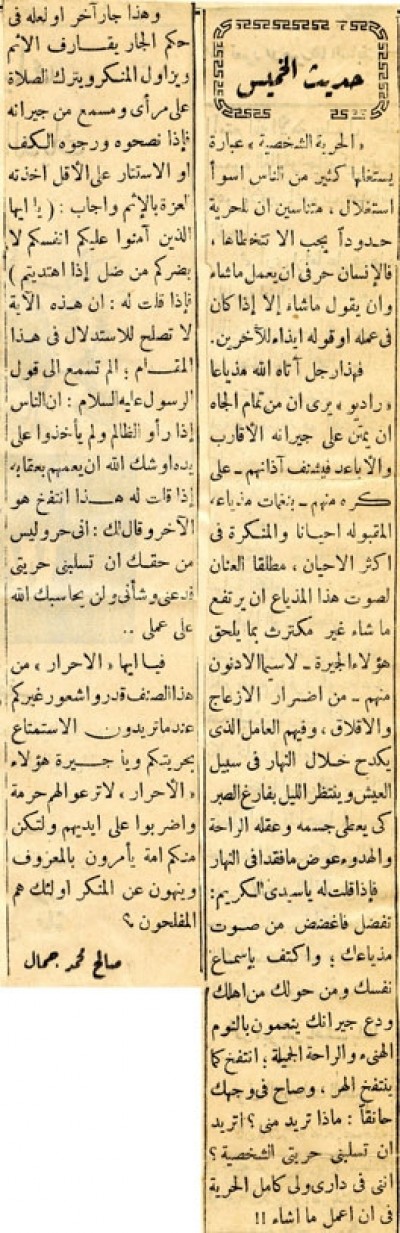 حديث الخميس
«الحرية الشخصية» عبارة
يستغلها كثير من الناس اسوأ
استغلال ، متناسين ان للحرية
حدوداً يجب الا تتخطاها ،
فالإنسان حر في ان يعمل ماشاء
وان يقول ماشاء إلا إذا كان
في عمله او قوله ايذاء للآخرين.
فهذا رجل آتاه الله مذياعا
«راديو» يرى ان من تمام الجاه
ان يمتن على جيرانه الأقارب
والأباعد فيشنف آذانهم – على
كره منهم – بنغمات مذياعه
المقبوله احيانا والمنكرة في
اكثر الاحيان ، مطلقا العنان
لصوت هذا المذياع ان يرتفع
ما شاء غير مكترث بما يلحق
هؤلاء الجيرة – لاسيما الادنون
منهم – من اضرار الازعاج
والاقلاق ، وفيهم العامل الذى
يكدح خلال النهار في سبيل
العيش وينتظر الليل بفارغ الصبر
كي يعطى جسمه وعقله الراحة
والهدوء عوض ما فقد في النهار
فإذا قلت له ياسيدى الكريم:
تفضل فاغضض من صوت
مذياعك ؛ واكتف بإسماع
نفسك ومن حولك من اهلك
ودع جيرانك ينعمون بالنوم
الهنيء والراحة الجميلة ؛ انتفخ كما
ينتفخ الهر ، وصاح في وجهك
حانقاً : ماذا تريد منى ؟ اتريد
ان تسلبنى حريتى الشخصية ؟
اننى في دارى ولى كامل الحرية
في ان اعمل ما اشاء !!
وهذا جار آخر او لعله في
حكم الجار يقارف الاثم
ويزاول المنكر ويترك الصلاة
على مرأى ومسمع من جيرانه
فإذا نصحوه ورجوه الكف
او الاستتار على الأقل اخذته
العزة بالإثم واجاب : ( يا ايها
الذين آمنوا عليكم انفسكم لا
يضركم من ضل إذا اهتديتم )
فإذا قلت له : ان هذه الآية
لا تصلح للاستدلال في هذا
المقام ؛ الم تسمع الى قول
الرسول عليه السلام : ان الناس
إذا رأو الظالم ولم يأخذوا على
يده اوشك الله ان يعمهم بعقابه
إذا قلت له هذا انتفخ هو
الآخر وقال لك : انى حر وليس
من حقك ان تسلبنى حريتى
فدعنى وشأنى ولن يحاسبك الله
على عملى ..
فيا ايها «الاحرار» من
هذا الصنف قدروا شعور غيركم
عندما تريدون الاستمتاع
بحريتكم ويا جيرة هؤلاء
«الأحرار» لا ترعوا لهم حرمة
واضربوا على ايديهم ولتكن
منكم امة يأمرون بالمعروف
وينهون عن المنكر اولئك هم
المفلحون ؟
صالح محمد جمال